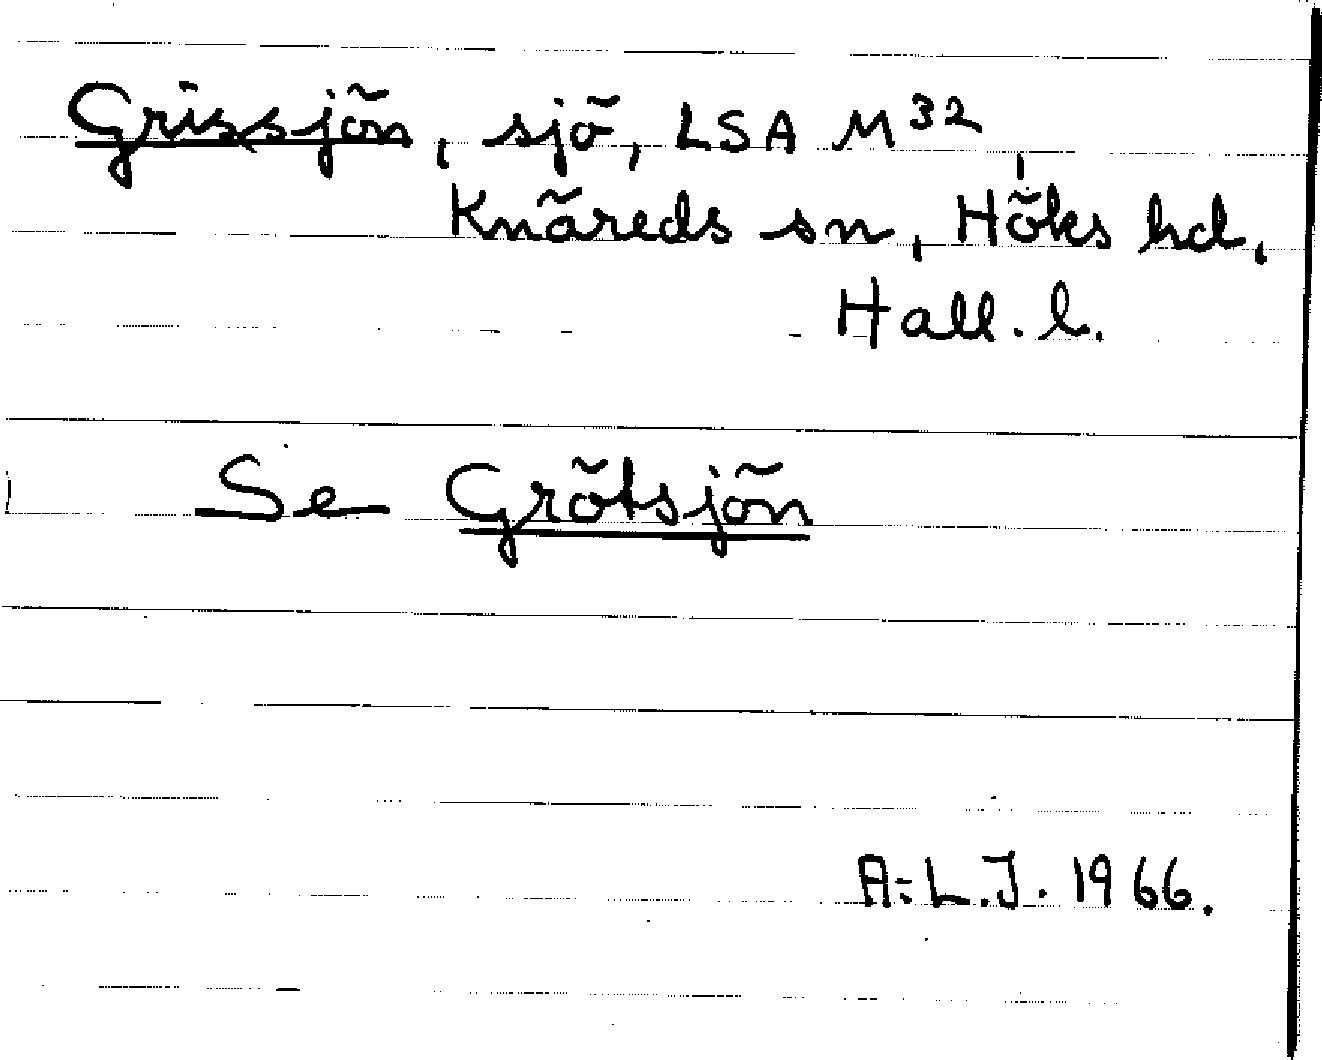 Grissjön, sjö, LSA M32,
Knäreds sn, Höks hd,
Hall. l.
Se Grötsjön
A-L.J. 1966.